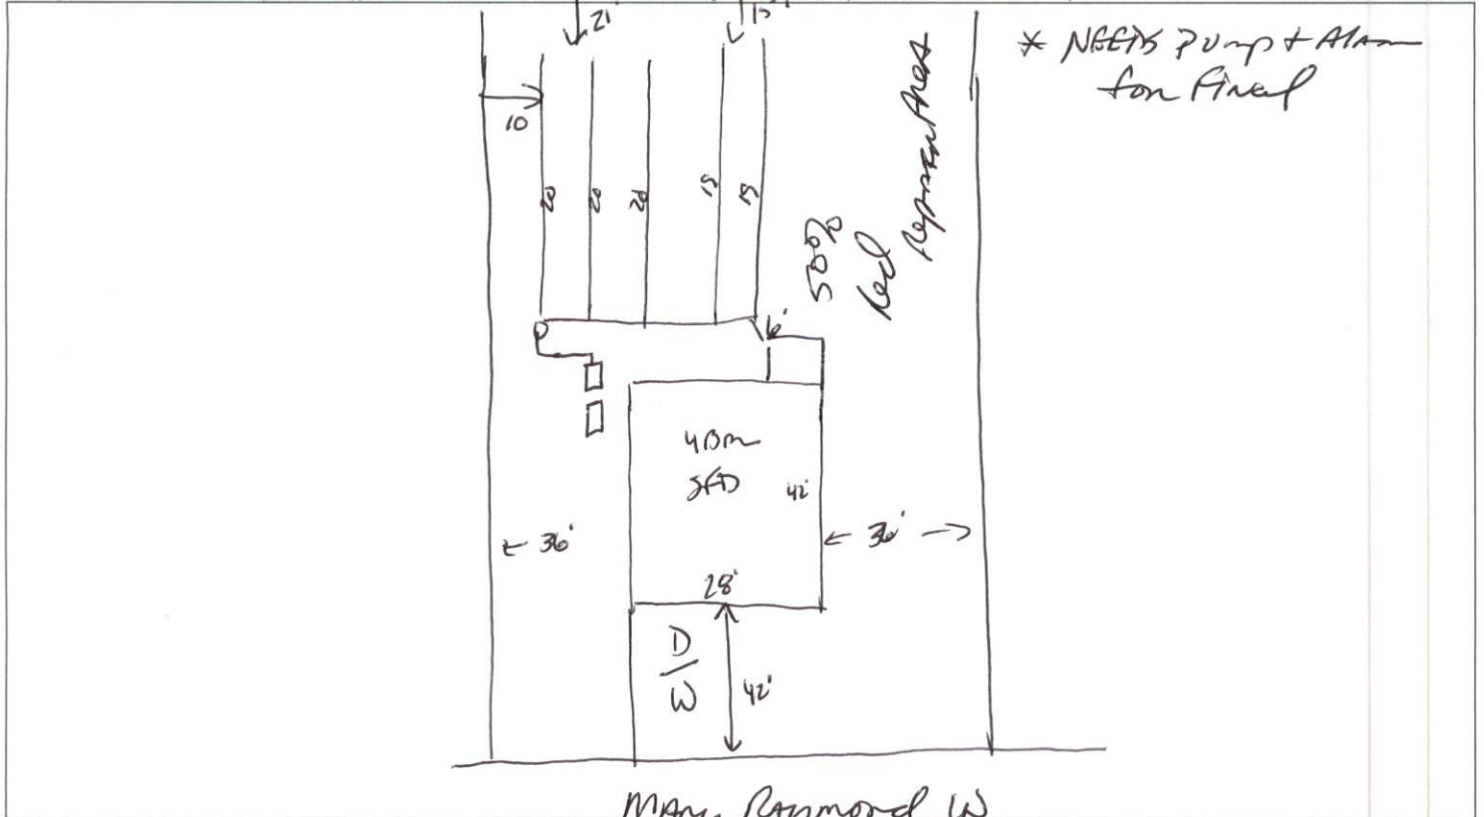 21'
15'
* NEEDS Pump + Alarm
for Final
10
20
20
20
15
15
50%
Red
Repair Area
6'
4 Bm
SFD
42'
← 36'
← 36' →
28'
D/W
42'
Raymond